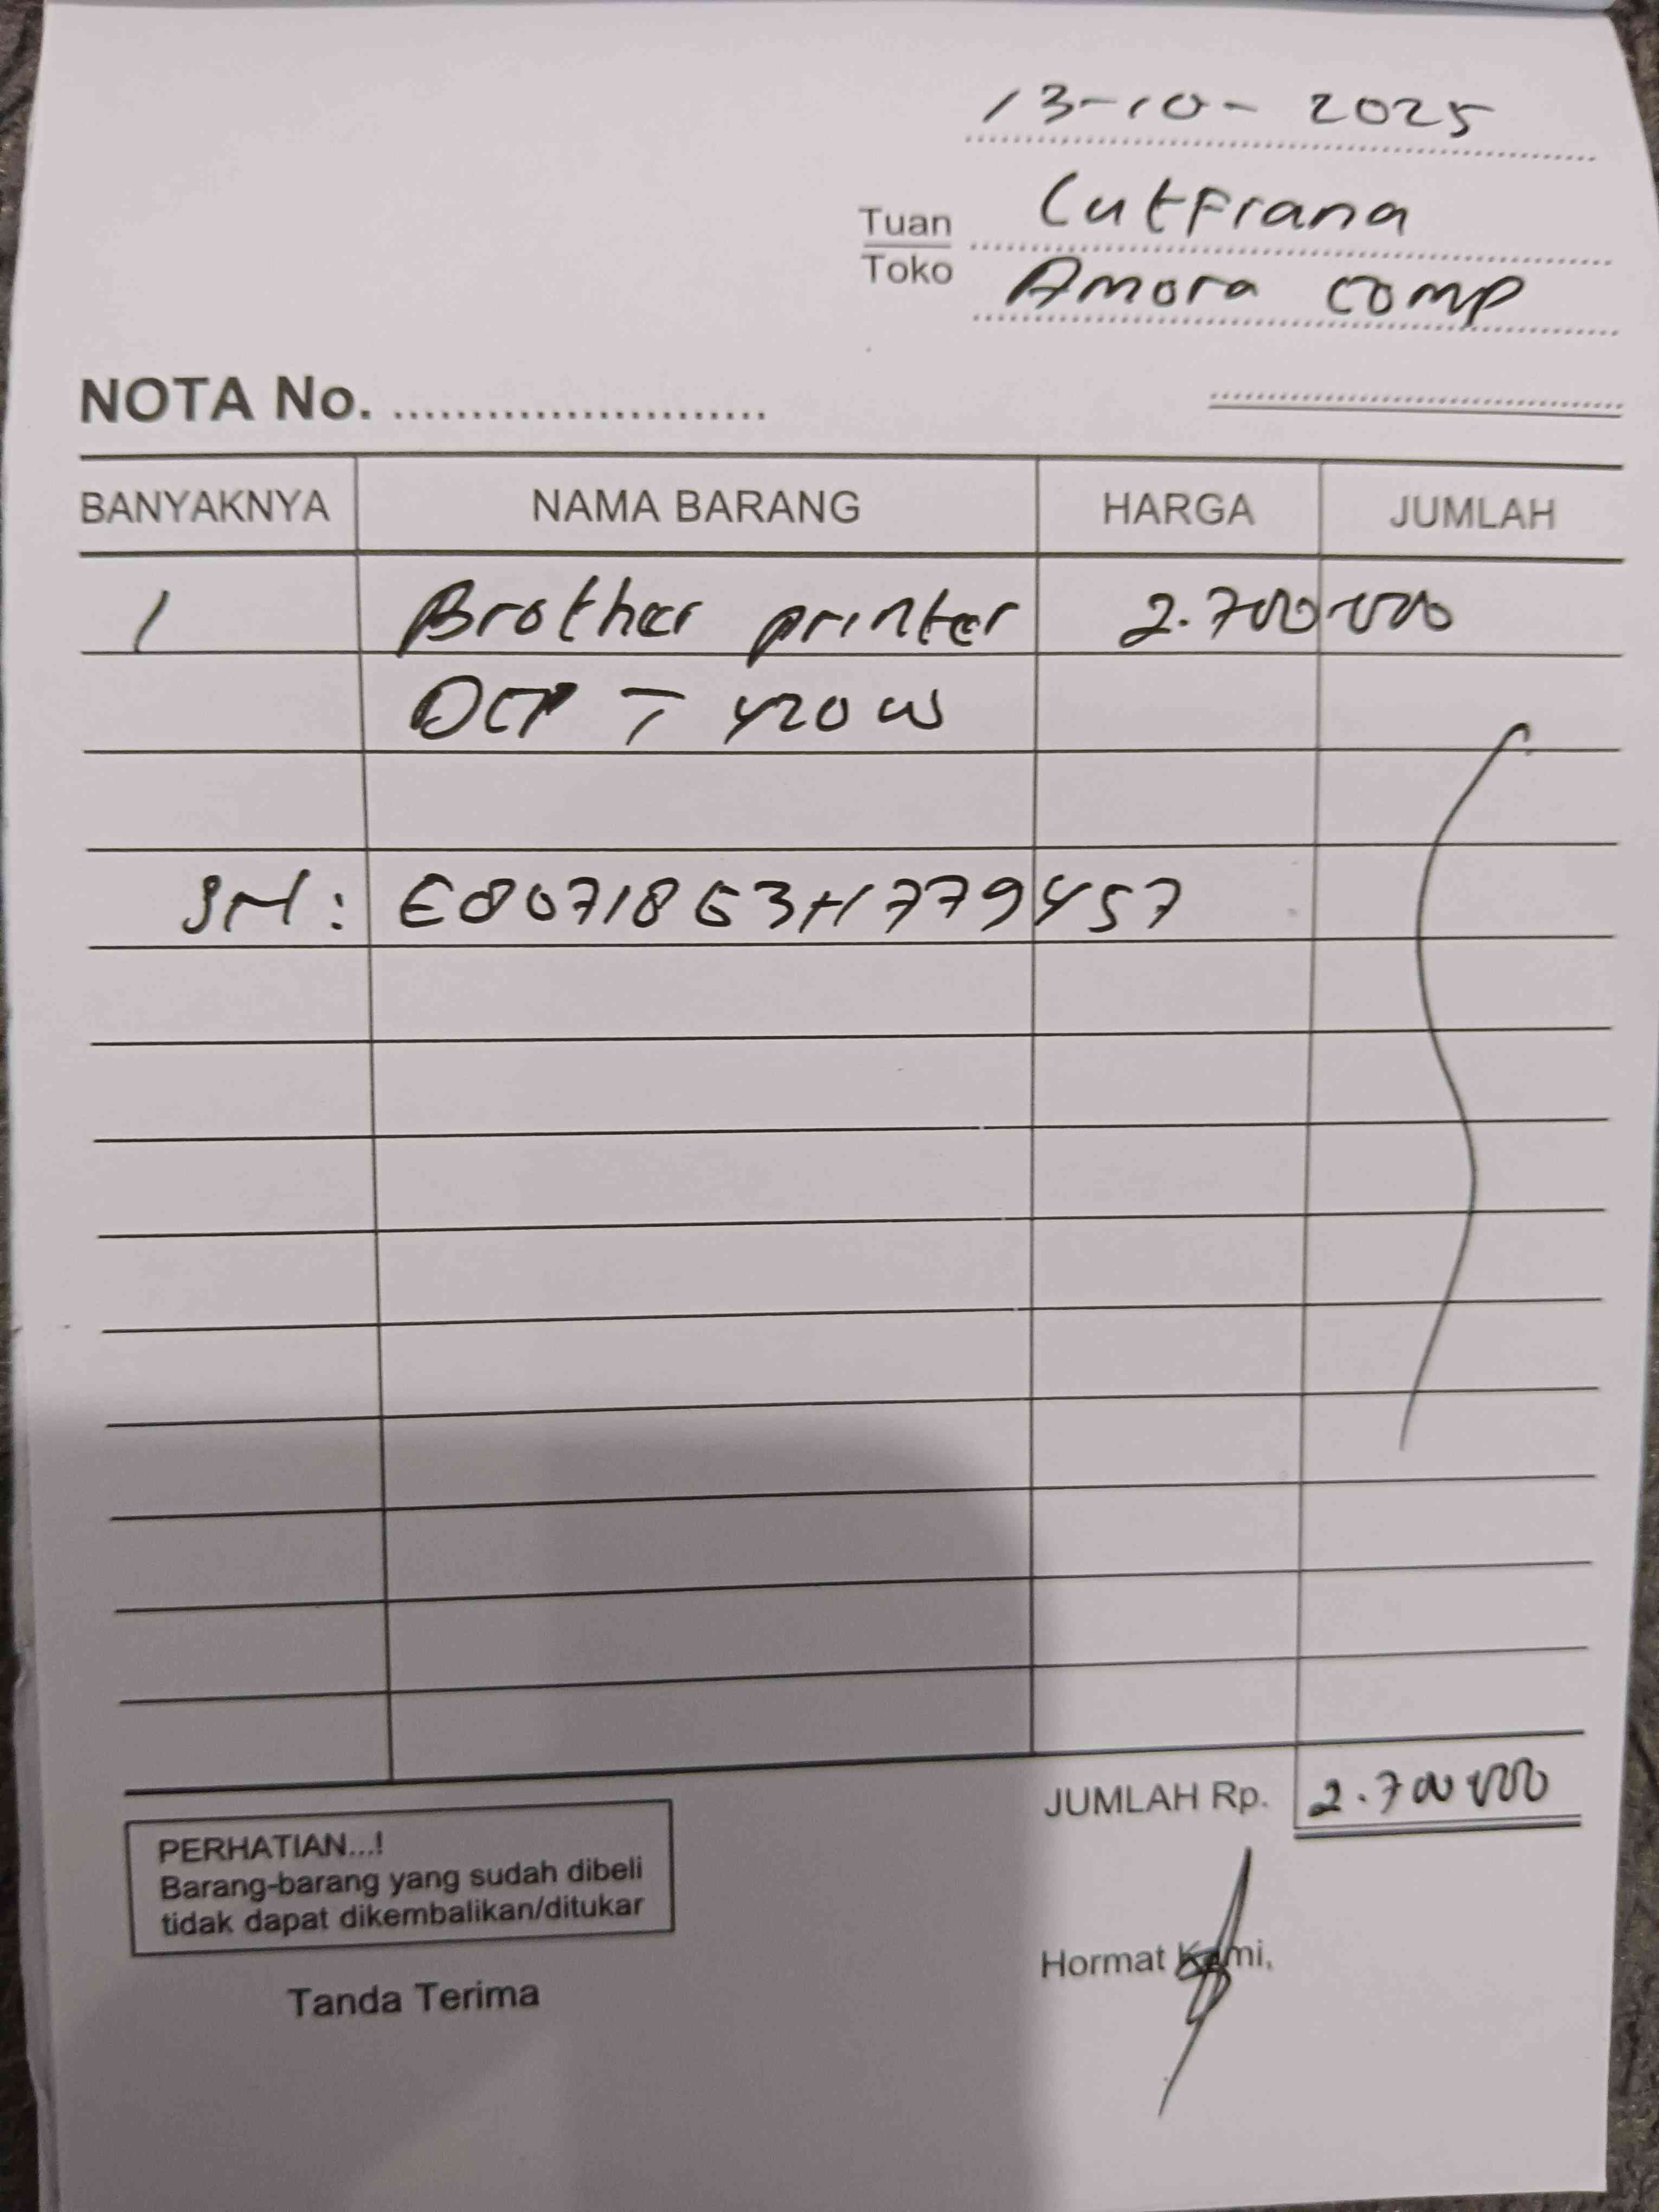 13-10-2025
Tuan Cutfrana
Toko Amora comp
NOTA No. ........................
BANYAKNYA NAMA BARANG HARGA JUMLAH
1 Brother printer 2.700 000
DCP T 420 W
SN: E80718G3H779457
JUMLAH Rp. 2.700 000
PERHATIAN...!
Barang-barang yang sudah dibeli
tidak dapat dikembalikan/ditukar
Hormat Kami,
Tanda Terima